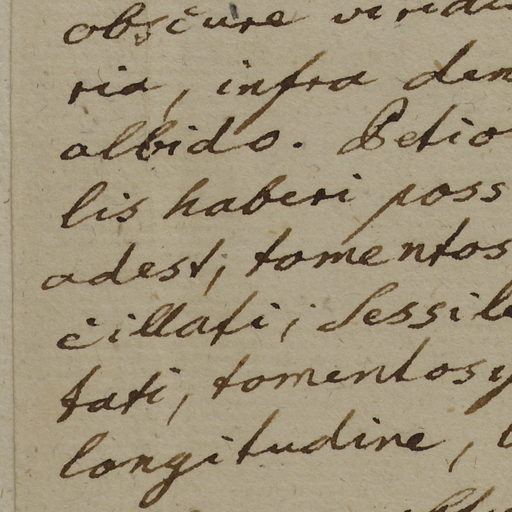 obscure virid
ria, infra den
albido. Petio
lis haberi poss
adest, tomentos
cillati; Sessile
tati, tomentosy
longitudine,